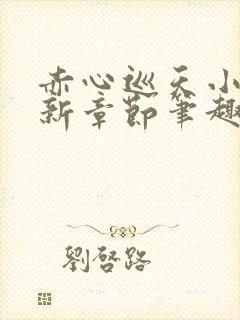 赤心巡天小
新章節筆趣
劉啓路